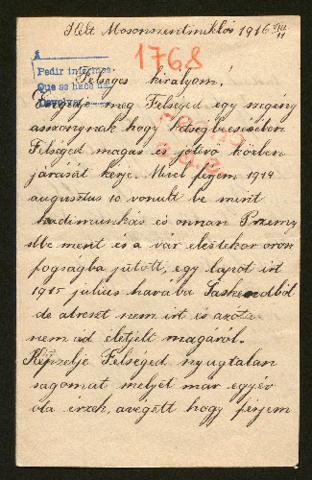 Kelt Mosonszentmiklós 1916 VII/11
1768
Pedir informes
Que se hace
Felséges királyom!
Engedje meg Felséged egy szegény
asszonynak hogy kétségbeesésében
Felséged magas és jóltévő közben
járását kérje. Mivel férjem 1914
augusztus 10 vonult be mint
hadimunkás és onnan Przemy
slbe ment és a vár elestekor orosz
fogságba jutott, egy lapot írt
1915 július havába Taskendból
de atreszt nem írt és azóta
nem ád életjelt magáról.
Képzelje Felséged nyugtalan
ságomat melyet már egy év
óta érzek, avégett hogy férjem